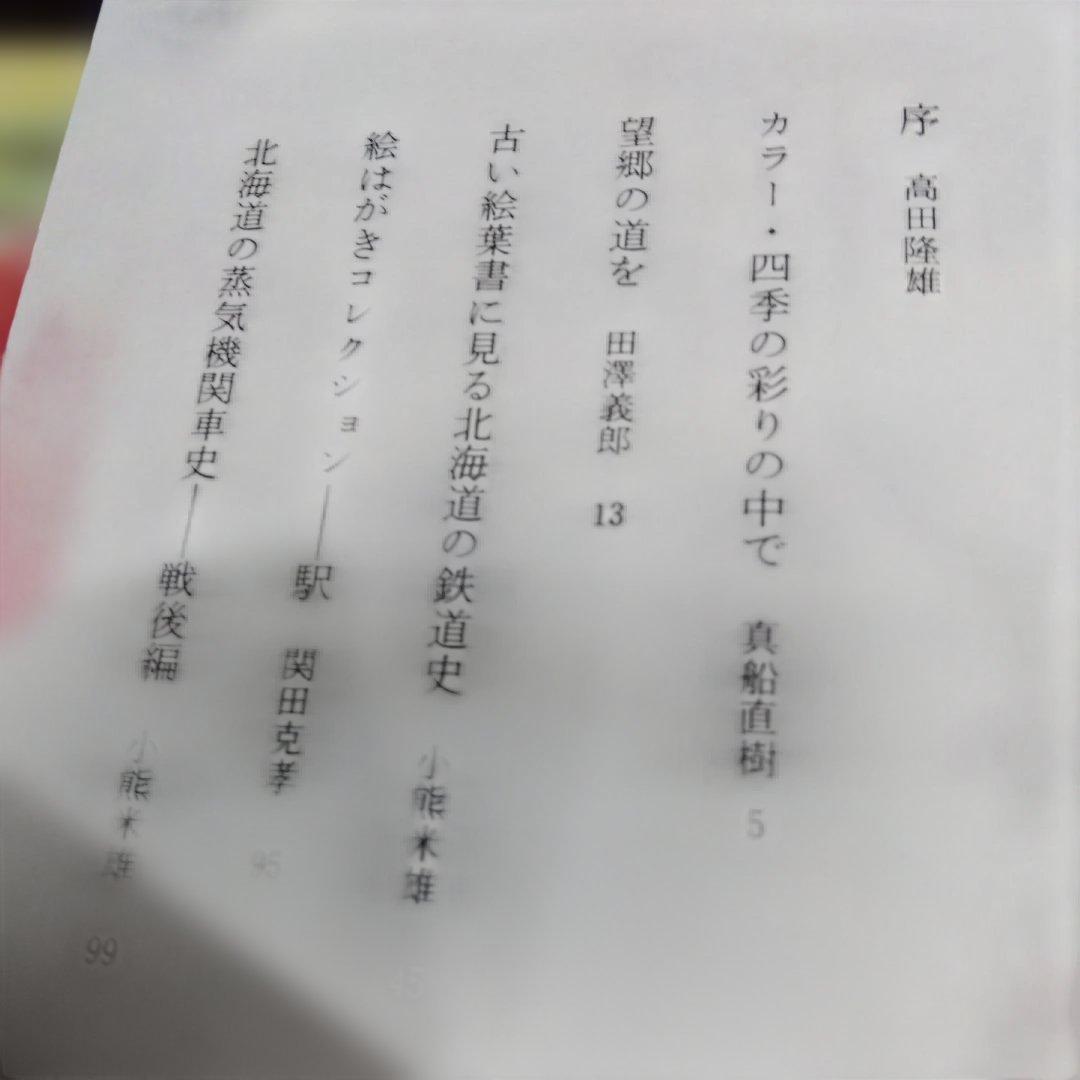 序 高田隆雄
カラー・四季の彩りの中で 真船直樹 5
望郷の道を 田澤義郎 13
古い絵葉書に見る北海道の鉄道史 小熊米雄 45
絵はがきコレクション――駅 関田克孝 95
北海道の蒸気機関車史――戦後編 小熊米雄 99